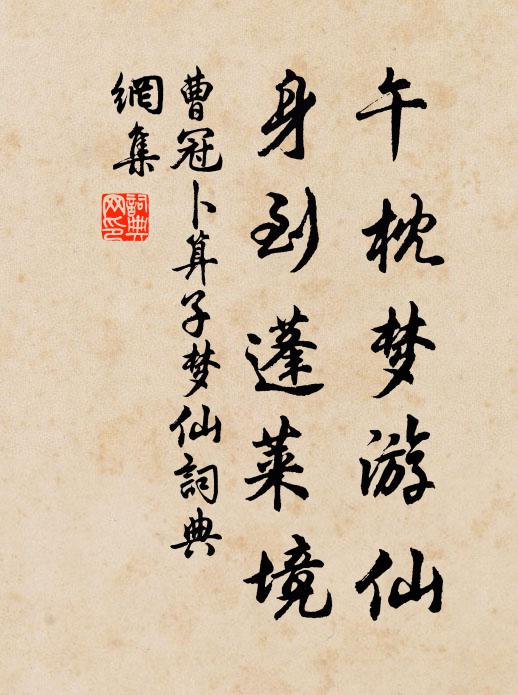 午枕梦游仙
身到蓬莱境
曹冠卜算子梦仙詞典
網集
詞典网印